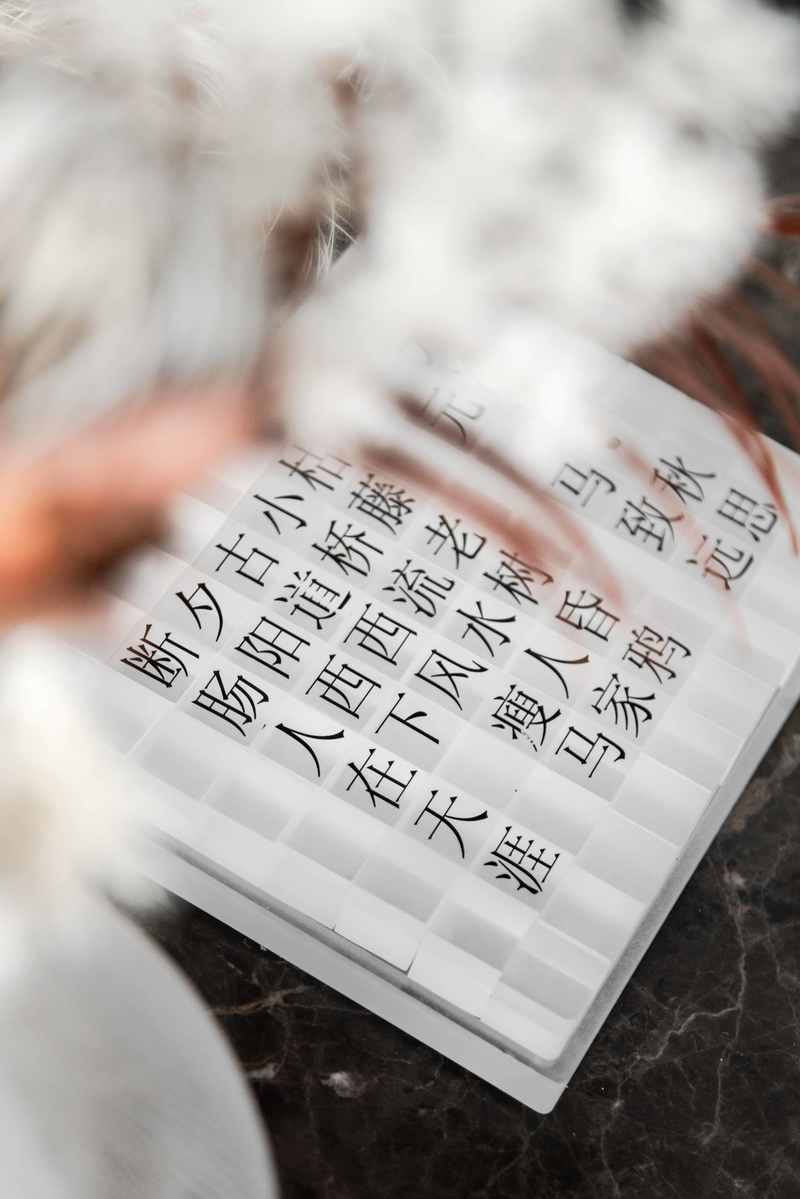 秋思
元 马致远
枯藤老树昏鸦
小桥流水人家
古道西风瘦马
夕阳西下
断肠人在天涯